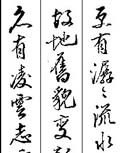 久有凌雲志
故地舊貌變
更有潺々流水